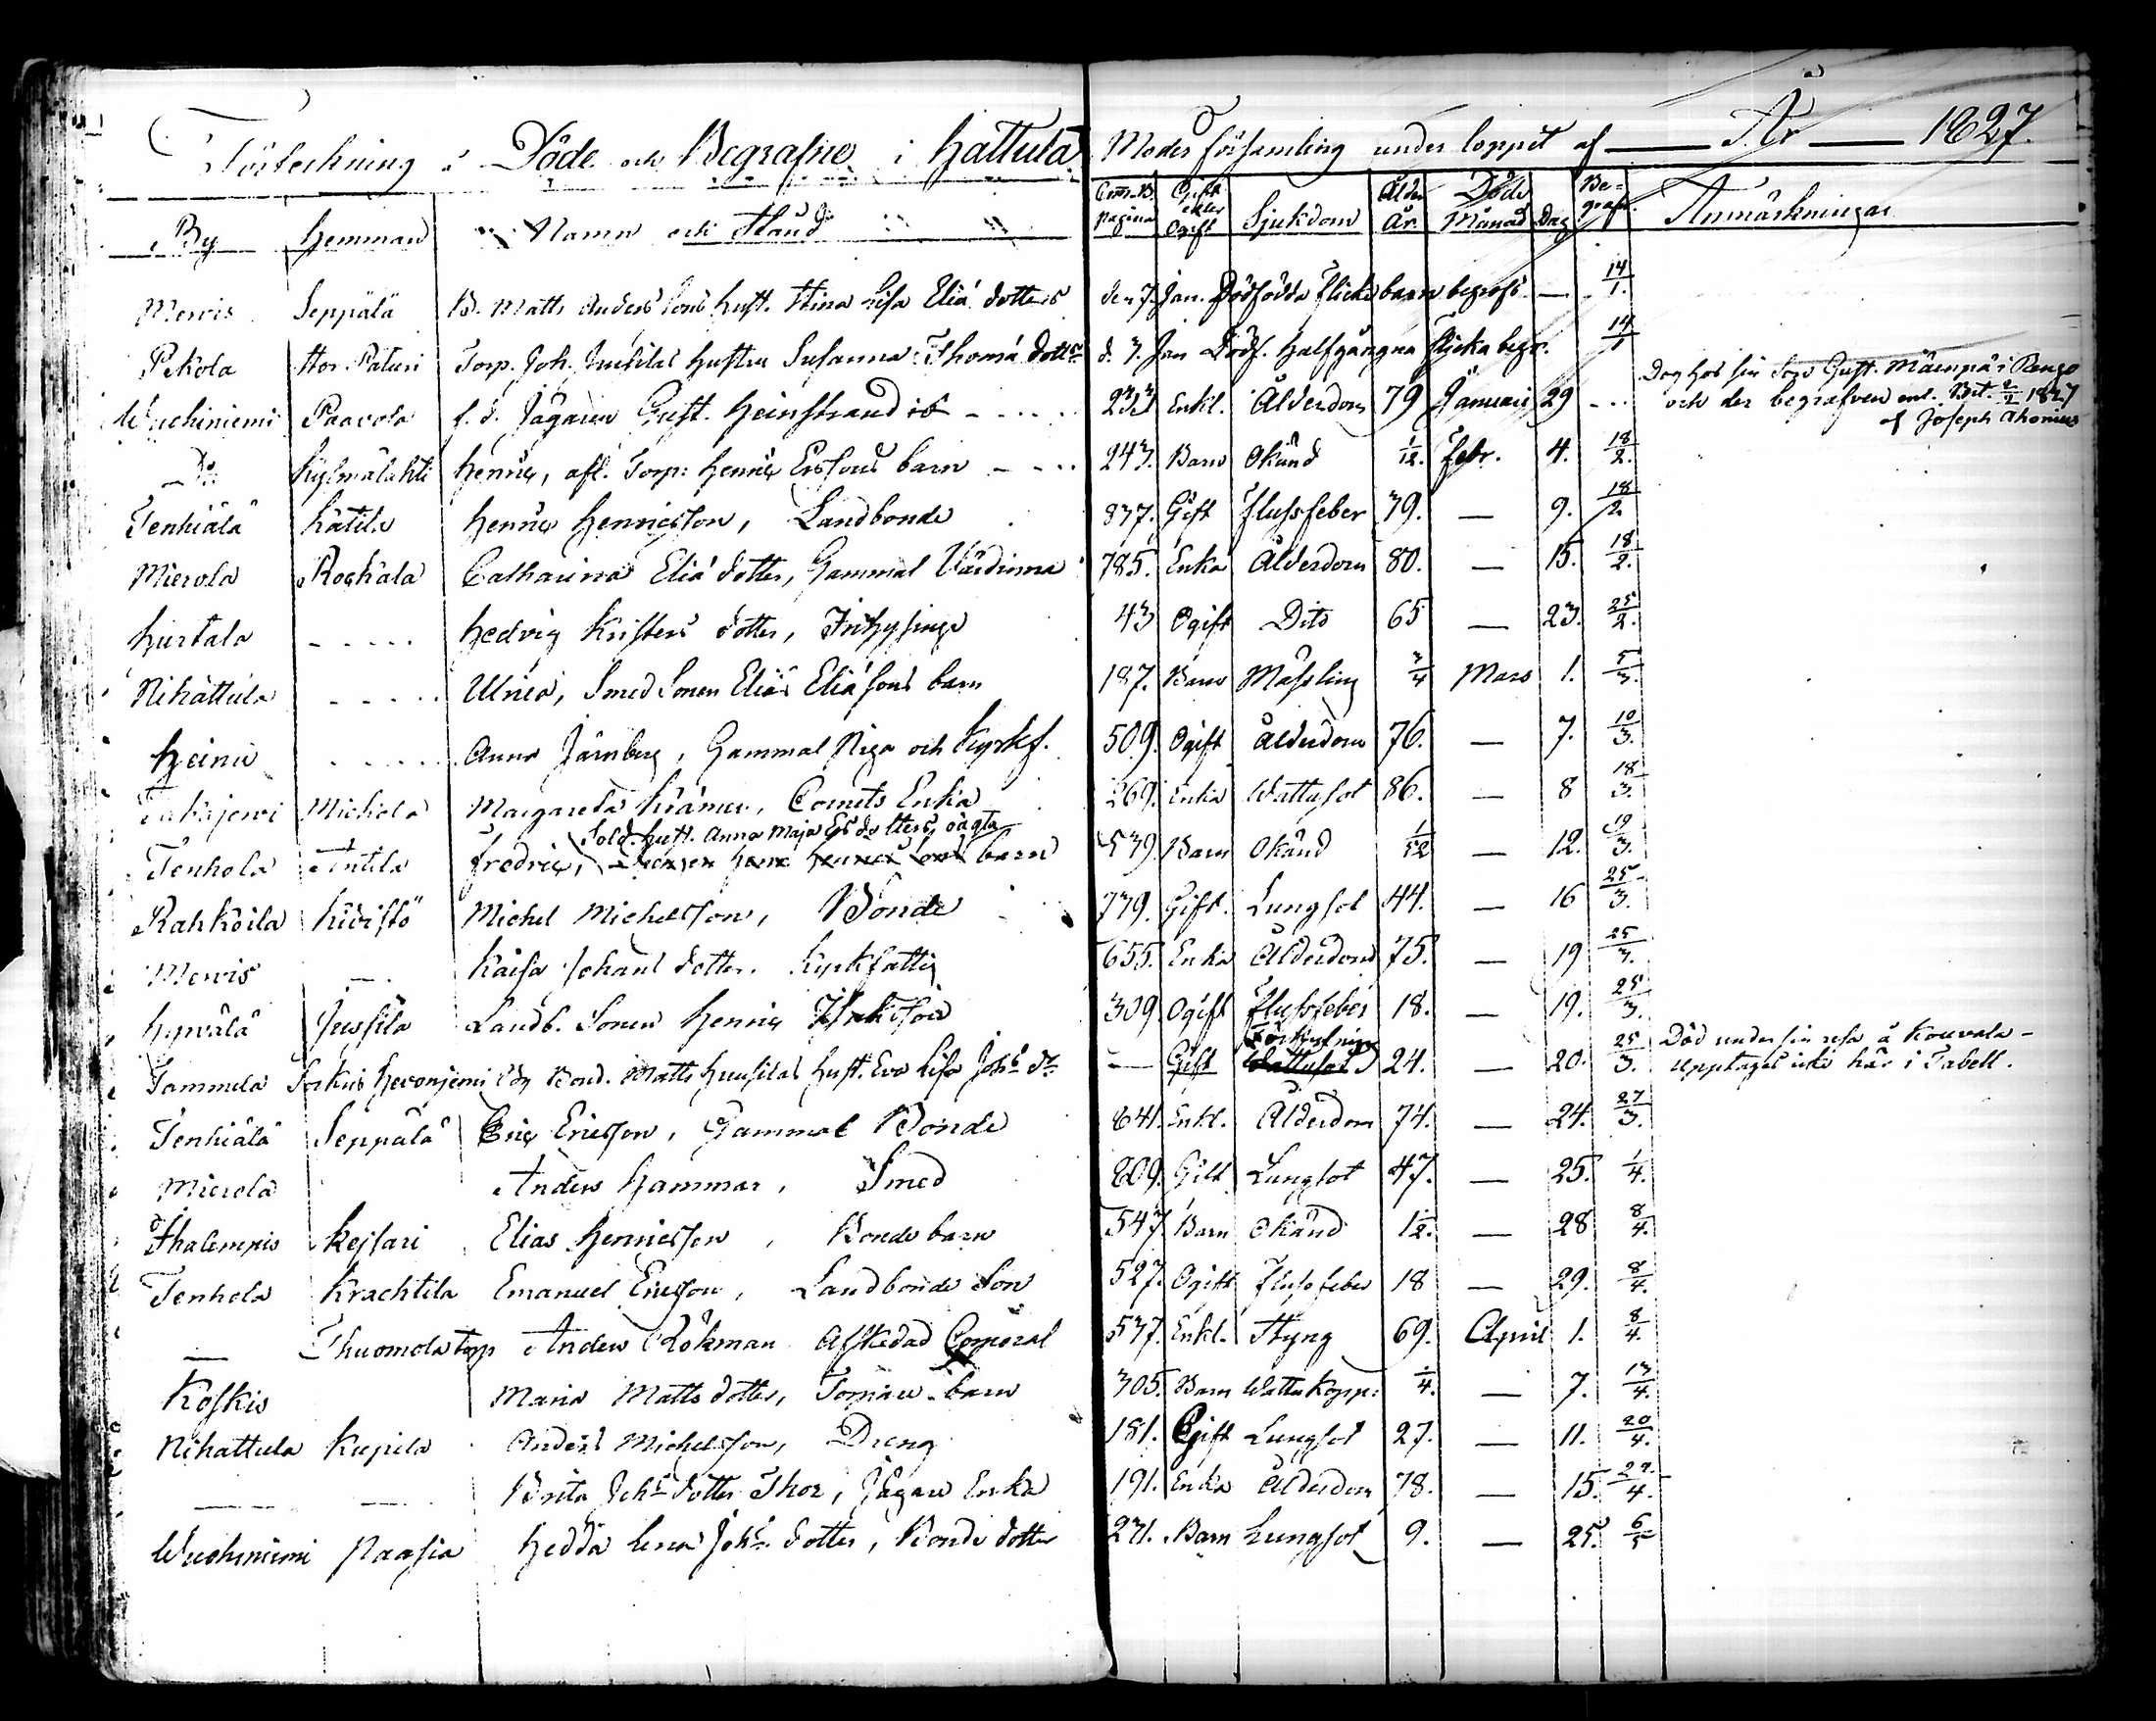 Förteckning å Döde och Begrafne i Hattula Moder församling under loppet af — År — 1827.
By Hemman Namn och Stånd Comm.B. pagina Gift eller Ogift Sjukdom Ålder År. Döde Månad Dag Be-grafn. Anmärkningar
Mervis Seppälä B. Matts Anders Sons hust. Stina Lisa Eliæ dotters den 7. Jan. Dödfödda Flicke barn begrofs — 14/1.
Pekola Stor Paturi Torp. Joh. Jussilas hustru Susanna Thomæ dotters d. 7. Jan Dödf. Halfgångna flicka begr. 14/1
Wuchiniemi Paavola f. d. Jägaren Gust. Heinstrand is - - - - 233 Enkl. Ålderdom 79 Januari 29 - - - Dog hos sin Son Gust. Mäenpä i Rengo
och der begrafven enl. Bet. 2/2 1827
af Joseph Ahonius
Do Kylmälahti Henric, afl. Torp: Henric Ersons barn - - - 243. Barn Okänd 1/12. Febr. 4. 18/2.
Tenhiälä Kätilä Henric Henricsson, Landbonde 837. Gift Flussfeber 39. — 9. 18/2
Mierola Rochala Catharina Eliæ dotter, Gammal Värdinna 785. Enka Ålderdom 80. — 15. 18/2.
Hurtala - - - - Hedvig Kristers dotter, Inhysinge 43 Ogift Dito 65 — 23. 25/2.
Nihattula - - - - Ulrica, Smed Sonen Elias Eliæ sons barn 187. Barn Mässling 3/4 Mars 1. 5/3.
Heinu - - - - Anna Järnberg, Gammal Piga och Kyrkf. 509. Ogift Ålderdom 76. — 7. 10/3.
Michola Margareta Krämer, Cornets Enka 269. Enka Wattusot 86. — 8 18/3.
Sold. hust. Anna Maja Ers dotters oägta
Tenhola Anttila Fredric, barn 539. Barn Okänd 1/12 — 12. 19/3.
Rahkoila Kivistö Michel Michelsson, Bonde 739. Gift. Lungsot 44. — 16 25/3.
Mervis — Kaisa Johans dotter. Kyrkfattig 655. Enka Ålderdom 75. — 19 25/3.
Hyrvälä Jussila Landb. Sonen Henric 309. Ogift Flussfeber 18. — 19. 25/3.
Tammela Sockns Hevonjemi by Bond. Matts Huusilas hust. Eva Lisa Johs dr — Gift 24. — 20. 25/3. Död under sin resa å Kouvala -
upptages icke här i Tabell.
Tenhiälä Seppälä Eric Ericsson, Gammal Bonde 841. Enkl. Ålderdom 74. — 24. 27/3.
Mierola Anders Hammar, Smed 809. Gift Lungsot 47. — 25. 1/4.
Ihalempis Kejsari Elias Henricsson, Bonde barn 547. Barn Okänd 1/2. — 28 8/4.
Tenhola Krachtila Emanuel Ericsson, Landbonde Son 527. Ogift Flussfeber 18 — 29. 8/4.
— Thuomola torp Anders Rökman Afskedad Corporal 537. Enkl. Styng 69. April 1. 8/4.
Koskis Maria Matts dotter, barn 305. Barn Watta Kopp: 1/4. — 7. 13/4.
Nihattula Kupila Anders Michelsson, Dreng 181. Gift Lungsot 27. — 11. 20/4.
— — Brita Johs dotter Thor, Jägare Enka 191. Enka Ålderdom 78. — 15. 27/4.
Wuchiniemi Paasia Hedda Lena Johs dotter, Bonde dotter 231. Barn Lungsot 9. — 25. 6/5